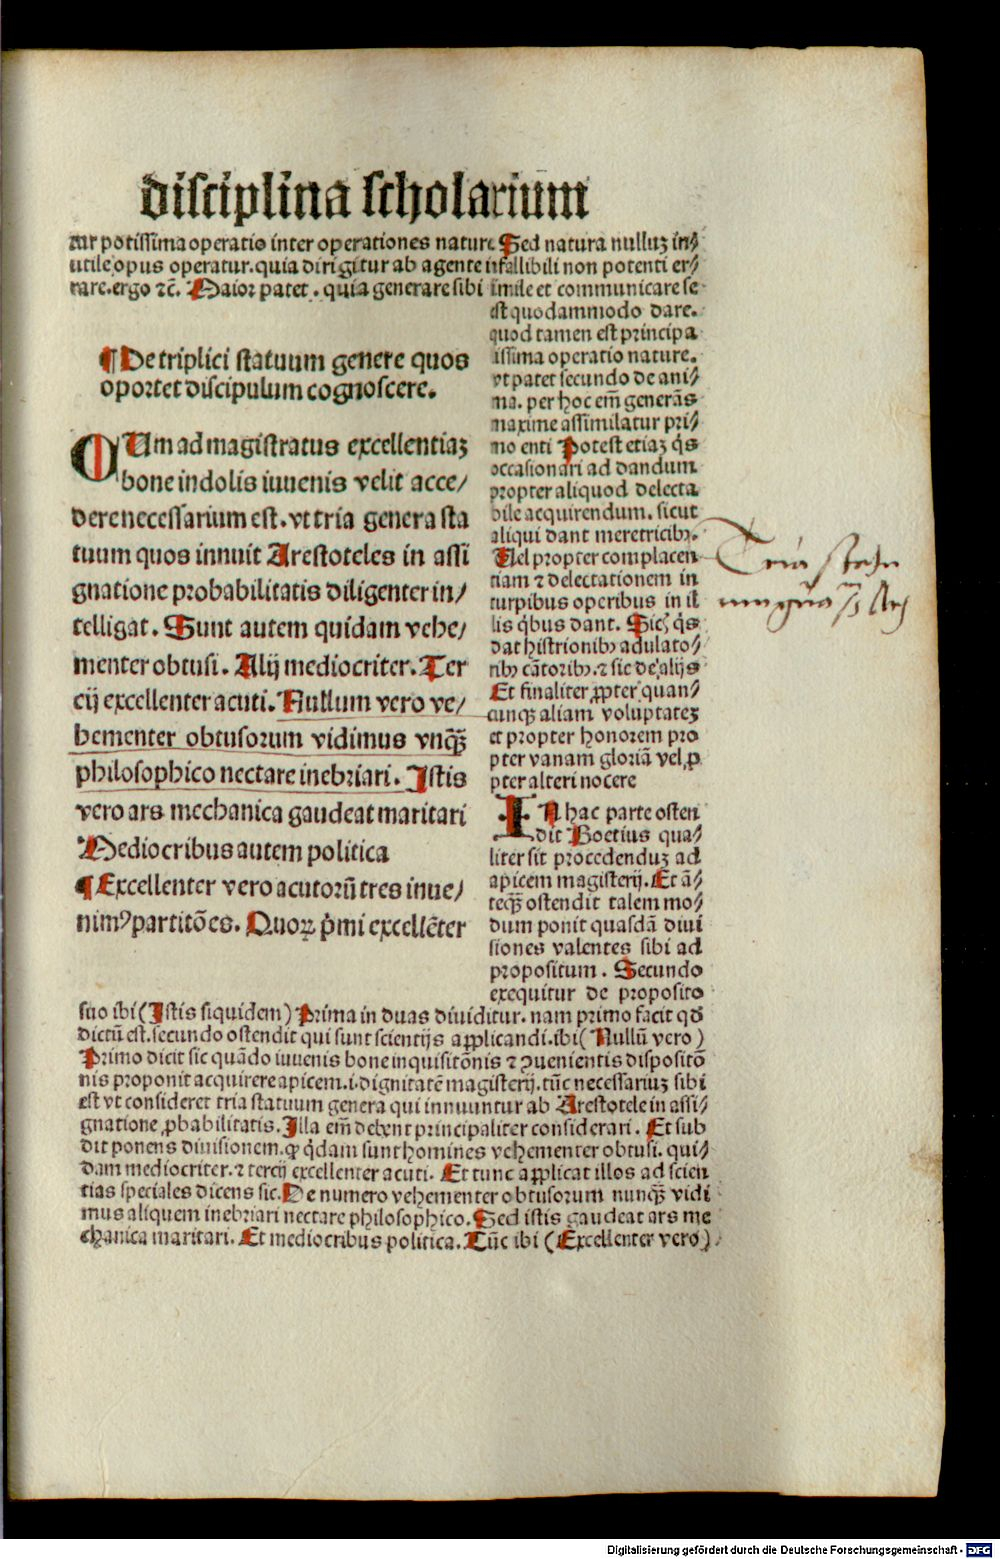 disciplina scholarium
tur potissima operatio inter operationes nature Sed natura nulluz in⸗
utile opus operatur. quia dirigitur ab agente infallibili non potenti er⸗
rare. ergo ⁊c̄. Maior patet. quia generare sibi simile et communicare se
est quodammodo dare.
quod tamen est principa
lissima operatio nature.
vt patet secundo de ani⸗
ma. per hoc em̄ generās
maxime assimilatur pri⸗
mo enti Potest etiaz q̇s
occasionari ad dandum
propter aliquod delecta
bile acquirendum. sicut
aliqui dant meretricibꝫ.
Uel propter complacen
tiam ⁊ delectationem in
turpibus operibus in il
lis q̇bus dant. Sic q̇s
dat histrionibꝫ adulato⸗
ribꝫ cātoribꝫ. ⁊ sic de alijs
Et finaliter ꝓpter quan⸗
cunqꝫ aliam voluptatez
et propter honorem pro
pter vanam gloriā vel ꝓ
pter alteri nocere
¶ De triplici statuum genere quos
oportet discipulum cognoscere.
CUm ad magistratus excellentiaz
bone indolis iuuenis velit acce⸗
dere necessarium est. vt tria genera sta
tuum quos innuit Arestoteles in assi
gnatione probabilitatis diligenter in⸗
telligat. Sunt autem quidam vehe⸗
menter obtusi. Alij mediocriter. Ter
cij excellenter acuti. Nullum vero ve⸗
hementer obtusorum vidimus vnqꝫ̄
philosophico nectare inebriari. Istis
vero ars mechanica gaudeat maritari
Mediocribus autem politica
¶ Excellenter vero acutorū tres inue⸗
nimꝰ partitōes. Quoꝝ p̄mi excellēter
Tria
IN hac parte osten
dit Boetius qua⸗
liter sit procedenduz ad
apicem magisterij. Et ā⸗
teqꝫ̄ ostendit talem mo⸗
dum ponit quasdā diui
siones valentes sibi ad
propositum. Secundo
exequitur de proposito
suo ibi (Istis siquidem) Prima in duas diuiditur. nam primo facit qđ
dictū est. secundo ostendit qui sunt scientijs applicandi. ibi (Nullū vero)
Primo dicit sic quādo iuuenis bone inquisitōnis ⁊ ꝯuenientis dispositō
nis proponit acquirere apicem .i. dignitatē magisterij. tūc necessariuz sibi
est vt consideret tria statuum genera qui innuuntur ab Arestotele in assi⸗
gnatione ꝓbabilitatis. Illa em̄ debent principaliter considerari. Et sub
dit ponens diuisionem. ꝙ q̇dam sunt homines vehementer obtusi. qui⸗
dam mediocriter. ⁊ tercij excellenter acuti. Et tunc applicat illos ad scien
tias speciales dicens sic. De numero vehementer obtusorum nunqꝫ̄ vidi
mus aliquem inebriari nectare philosophico. Sed istis gaudeat ars me
chanica maritari. Et mediocribus politica. Tūc ibi (Excellenter vero)
Digitalisierung gefördert durch die Deutsche Forschungsgemeinschaft - DFG